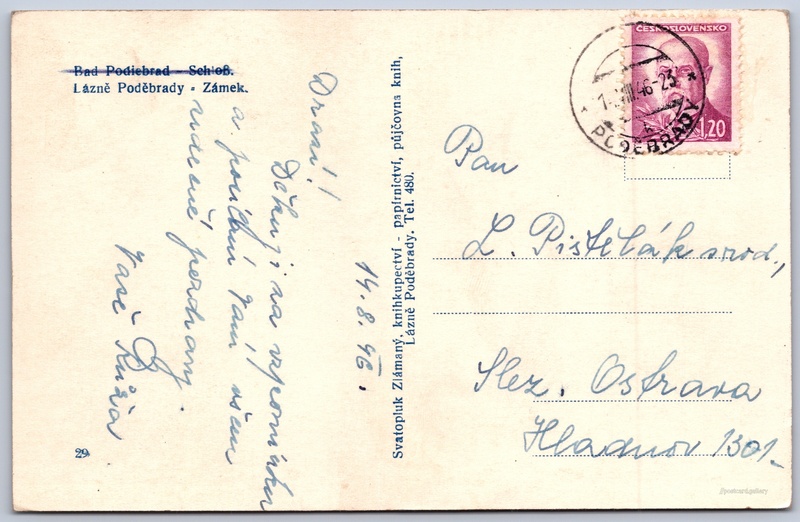 Bad Podiebrad - Schloß.
Lázně Poděbrady - Zámek.
Drazí!
Děkuji za vzpomínku
a posílám Vám všem
srdečné pozdravy.
Vaše Růža
14.8.46.
29
Svatopluk Zlámaný, knihkupectví - papírnictví, půjčovna knih,
Lázně Poděbrady. Tel. 480.
ČESKOSLOVENSKO
1,20
PODĚBRADY
Pan
L. Pištělák s rod.,
Slez. Ostrava
Hladnov 1301.